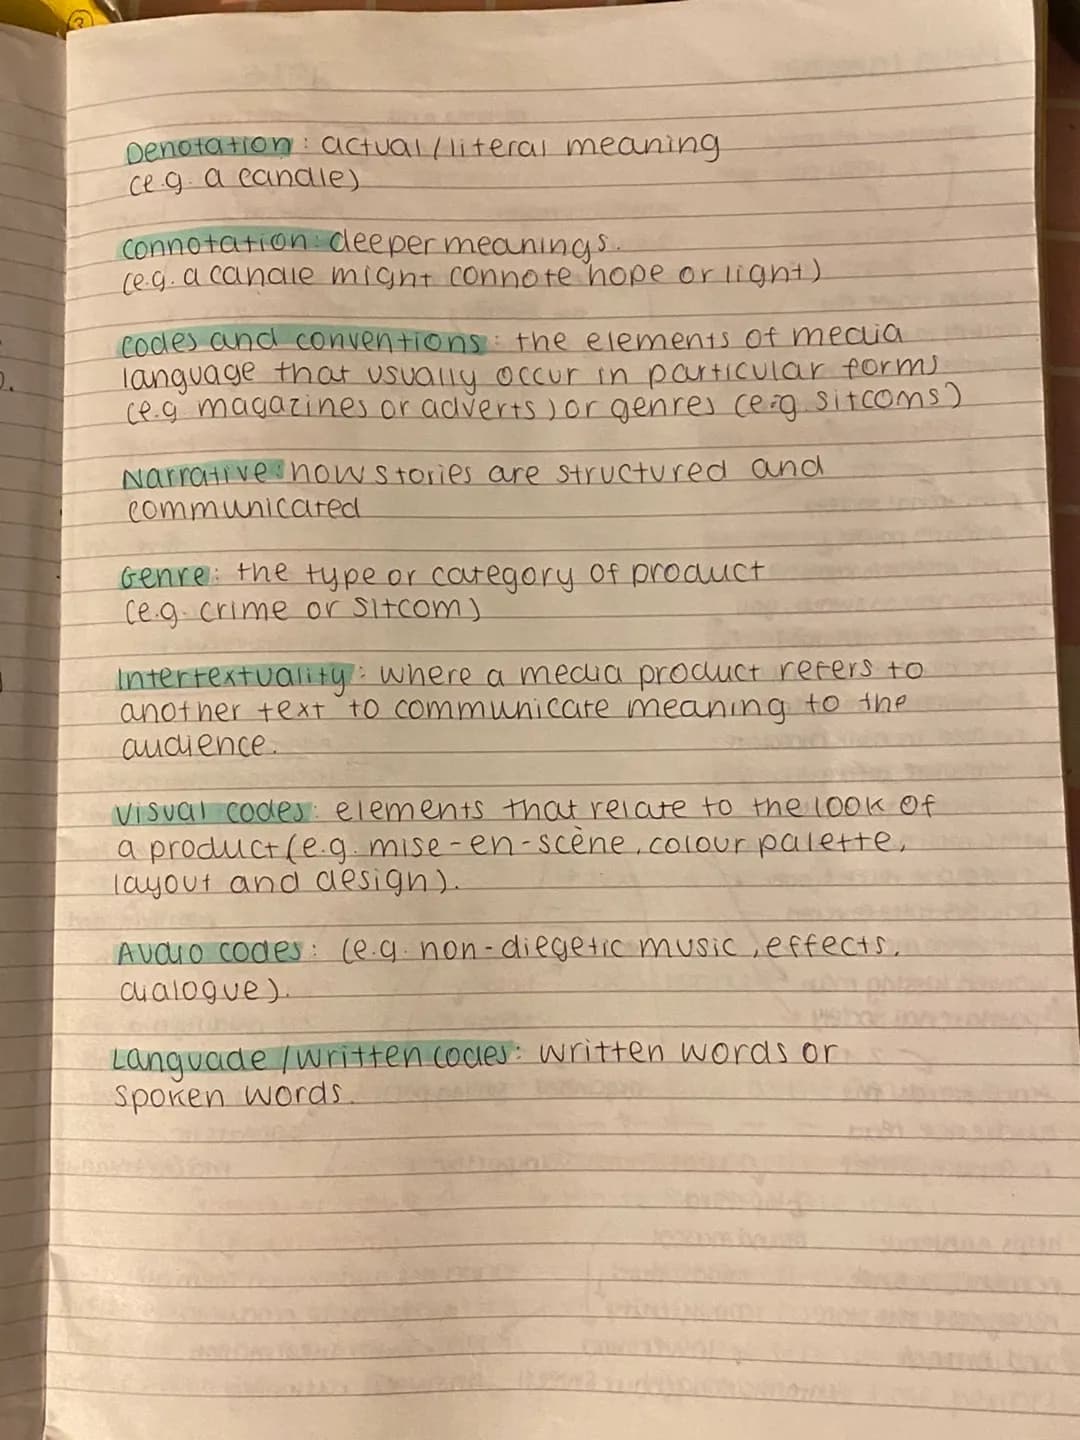 Denotation: actual/literal meaning
(e.g. a candle)
Connotation: deeper meanings.
(e.g. a candle might connote hope or light)
Codes and conventions: the elements of media
language that usually occur in particular forms
(e.g magazines or adverts) or genres (e.g. sitcoms)
Narrative: how stories are structured and
communicated
Genre: the type or category of product
(e.g. crime or sitcom)
Intertextuality: where a media product refers to
another text to communicate meaning to the
audience.
Visual codes: elements that relate to the look of
a product (e.g. mise-en-scène, colour palette,
layout and design).
Audio codes: (e.g. non-diegetic music, effects,
dialogue).
Languade /written codes: written words or
spoken words.